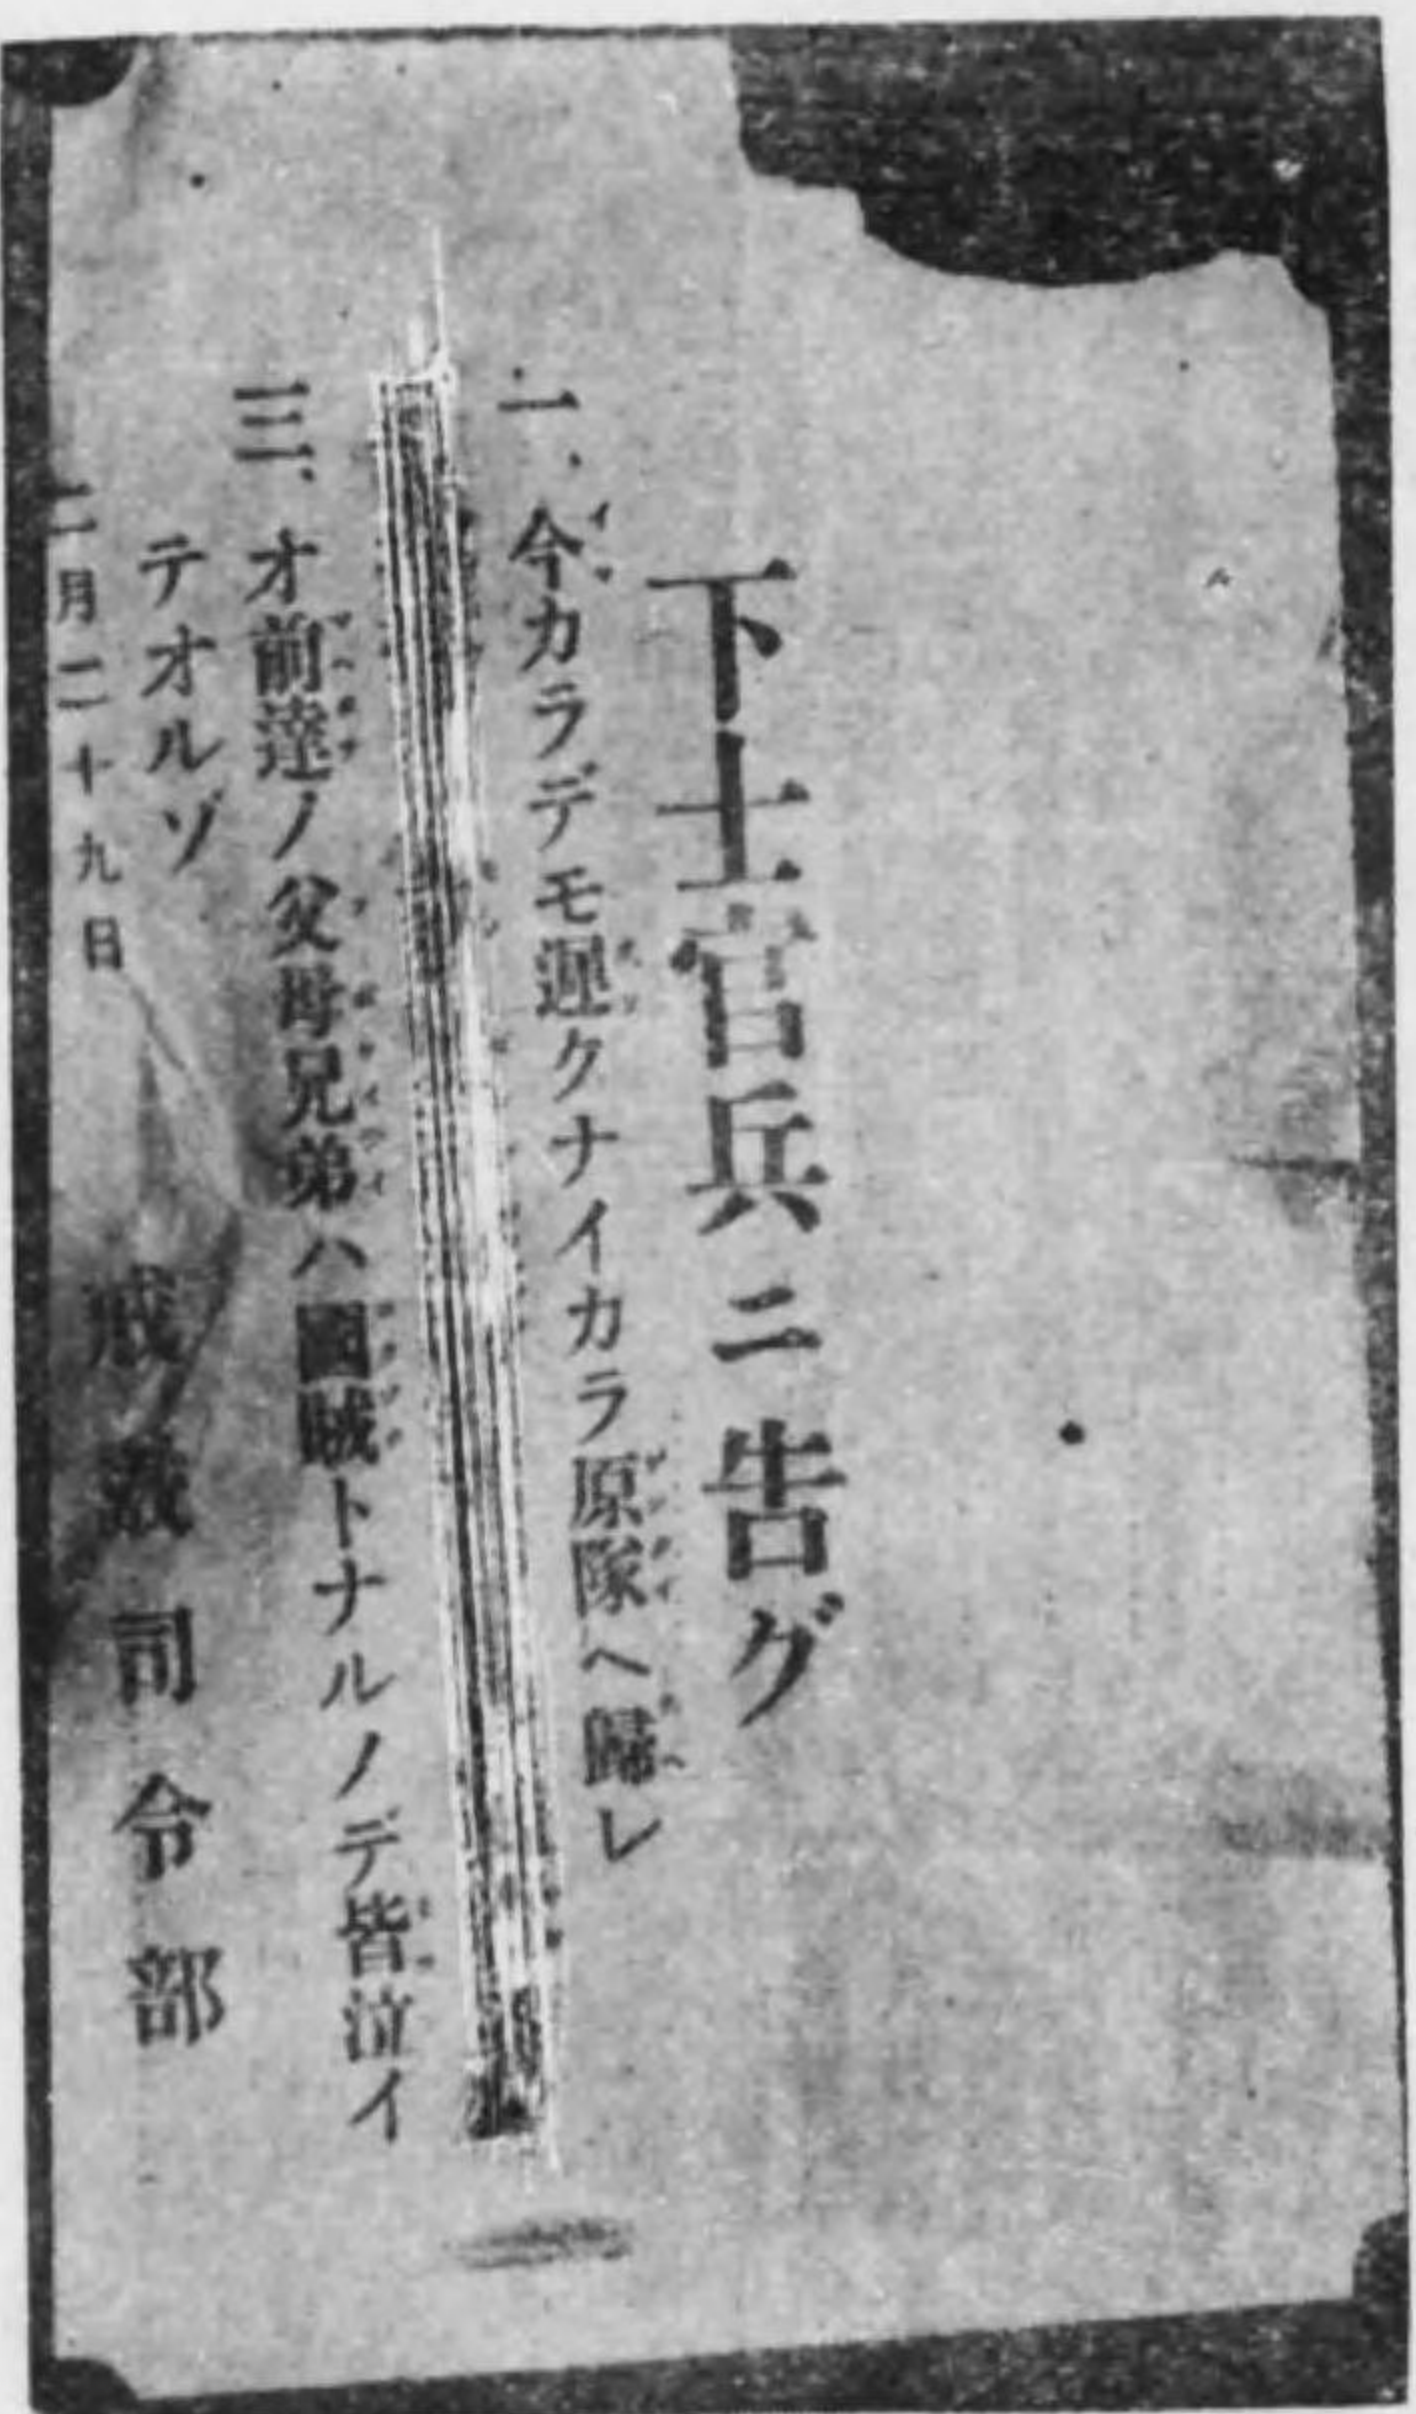 下士官兵ニ告グ
一、今カラデモ遲クナイカラ原隊ヘ歸レ
三、オ前達ノ父母兄弟ハ國賊トナルノデ皆泣イ
テオルゾ
二月二十九日
戒嚴司令部